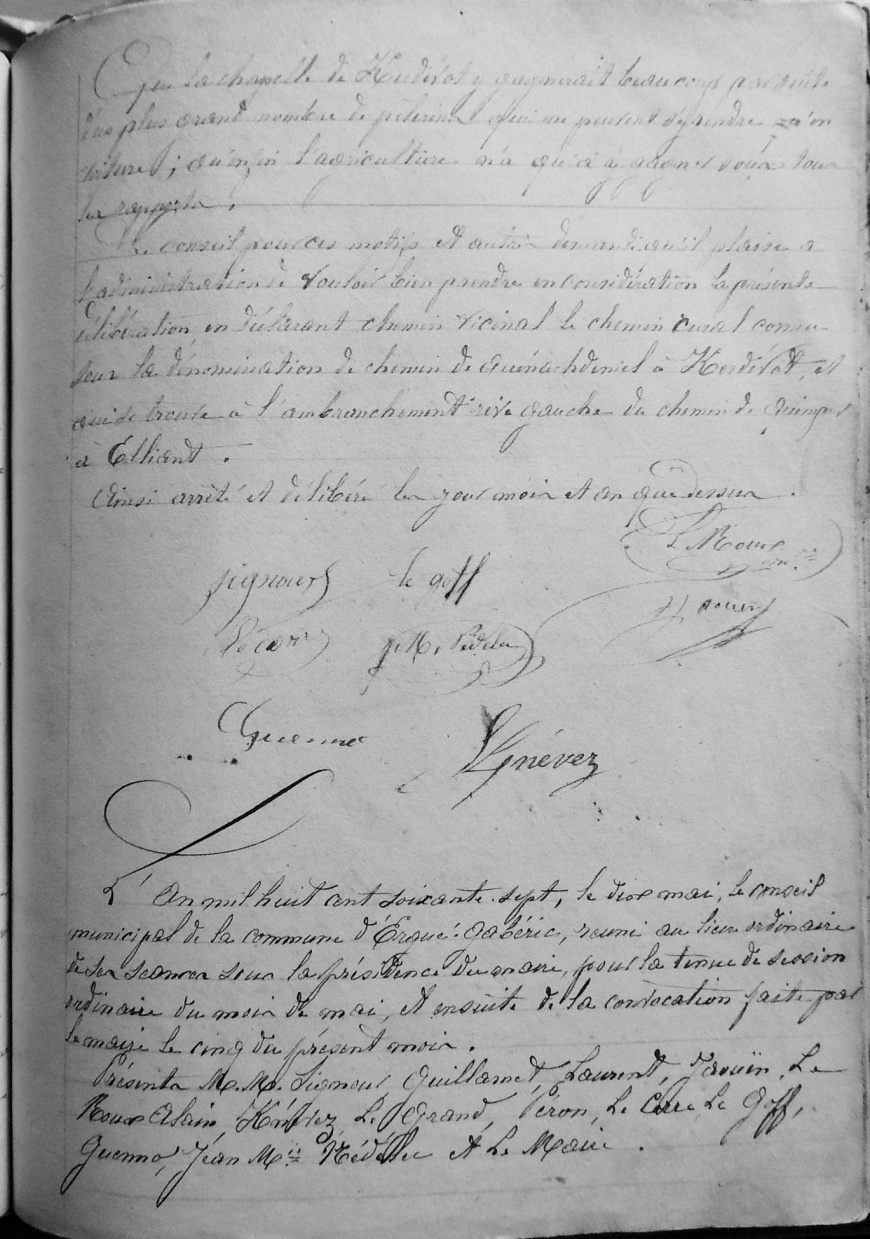 Que la chapelle de Kerdévot y gagnerait beaucoup par suite
d'un plus grand nombre de pèlerins qui ne peuvent s'y rendre qu'en
voiture ; qu'enfin l'agriculture n'a qu'à y gagner sous tous
les rapports.
Le conseil pour ces motifs et autres demande qu'il plaise a
l'administration de vouloir bien prendre en considération la présente
délibération, en déclarant chemin vicinal le chemin rural connu
sous la dénomination de chemin de Quénachdeniel à Kerdévot, et
qui se trouve à l'ambranchement rive gauche du chemin de Quimper
à Elliant.
Ainsi arrêté et délibéré les jour mois et an que dessus.
Le Roux
Signour le goff
Jaouen
Le Corre J M Nédélec
Guenno
Knévez
L'An mil huit cent soixante-sept, le dix mai, le conseil
municipal de la commune d'Ergué-Gabéric, reuni au lieu ordinaire
de ses séances sous la présidence du maire, pour la tenue de session
ordinaire du mois de mai, et ensuite de la convocation faite par
le maire le cinq du présent mois.
Présents M.M. Signour Guillamet, Laurent, Jaouën, Le
Roux Alain, Knévez, Le Grand, Péron, Le Corre Le Goff,
Guenno, Jean Mie Nédélec et Le Maire.